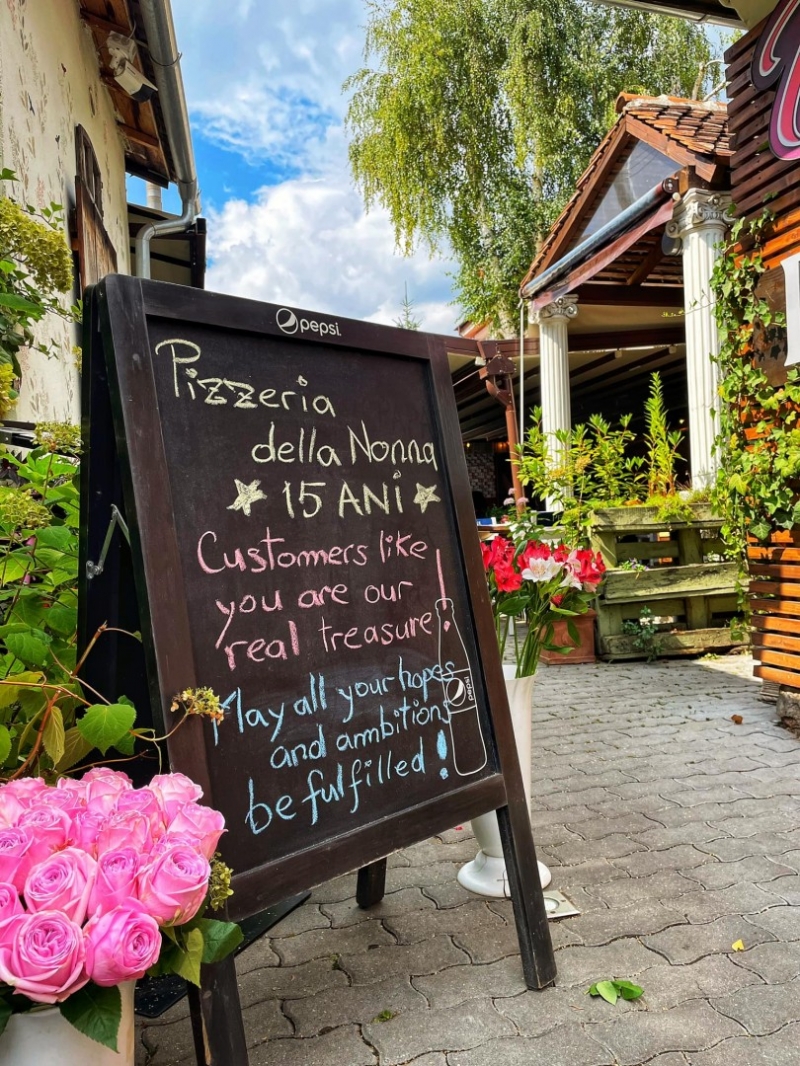 pepsi
Pizzeria
della Nonna
15 ANI
Customers like
you are our
real treasure!
May all your hopes
and ambitions
be fulfilled!
pepsi